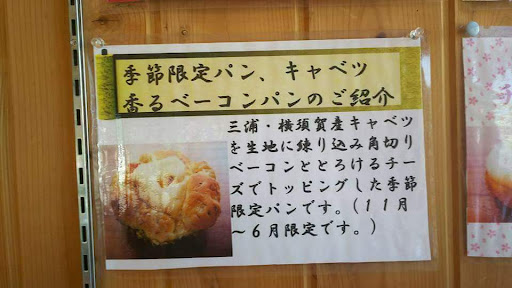 季節限定パン、キャベツ
香るベーコンパンのご紹介
三浦・横須賀産キャベツ
を生地に練り込み角切り
ベーコンととろけるチー
ズでトッピングした季節
限定パンです。(11月
～6月限定です。)